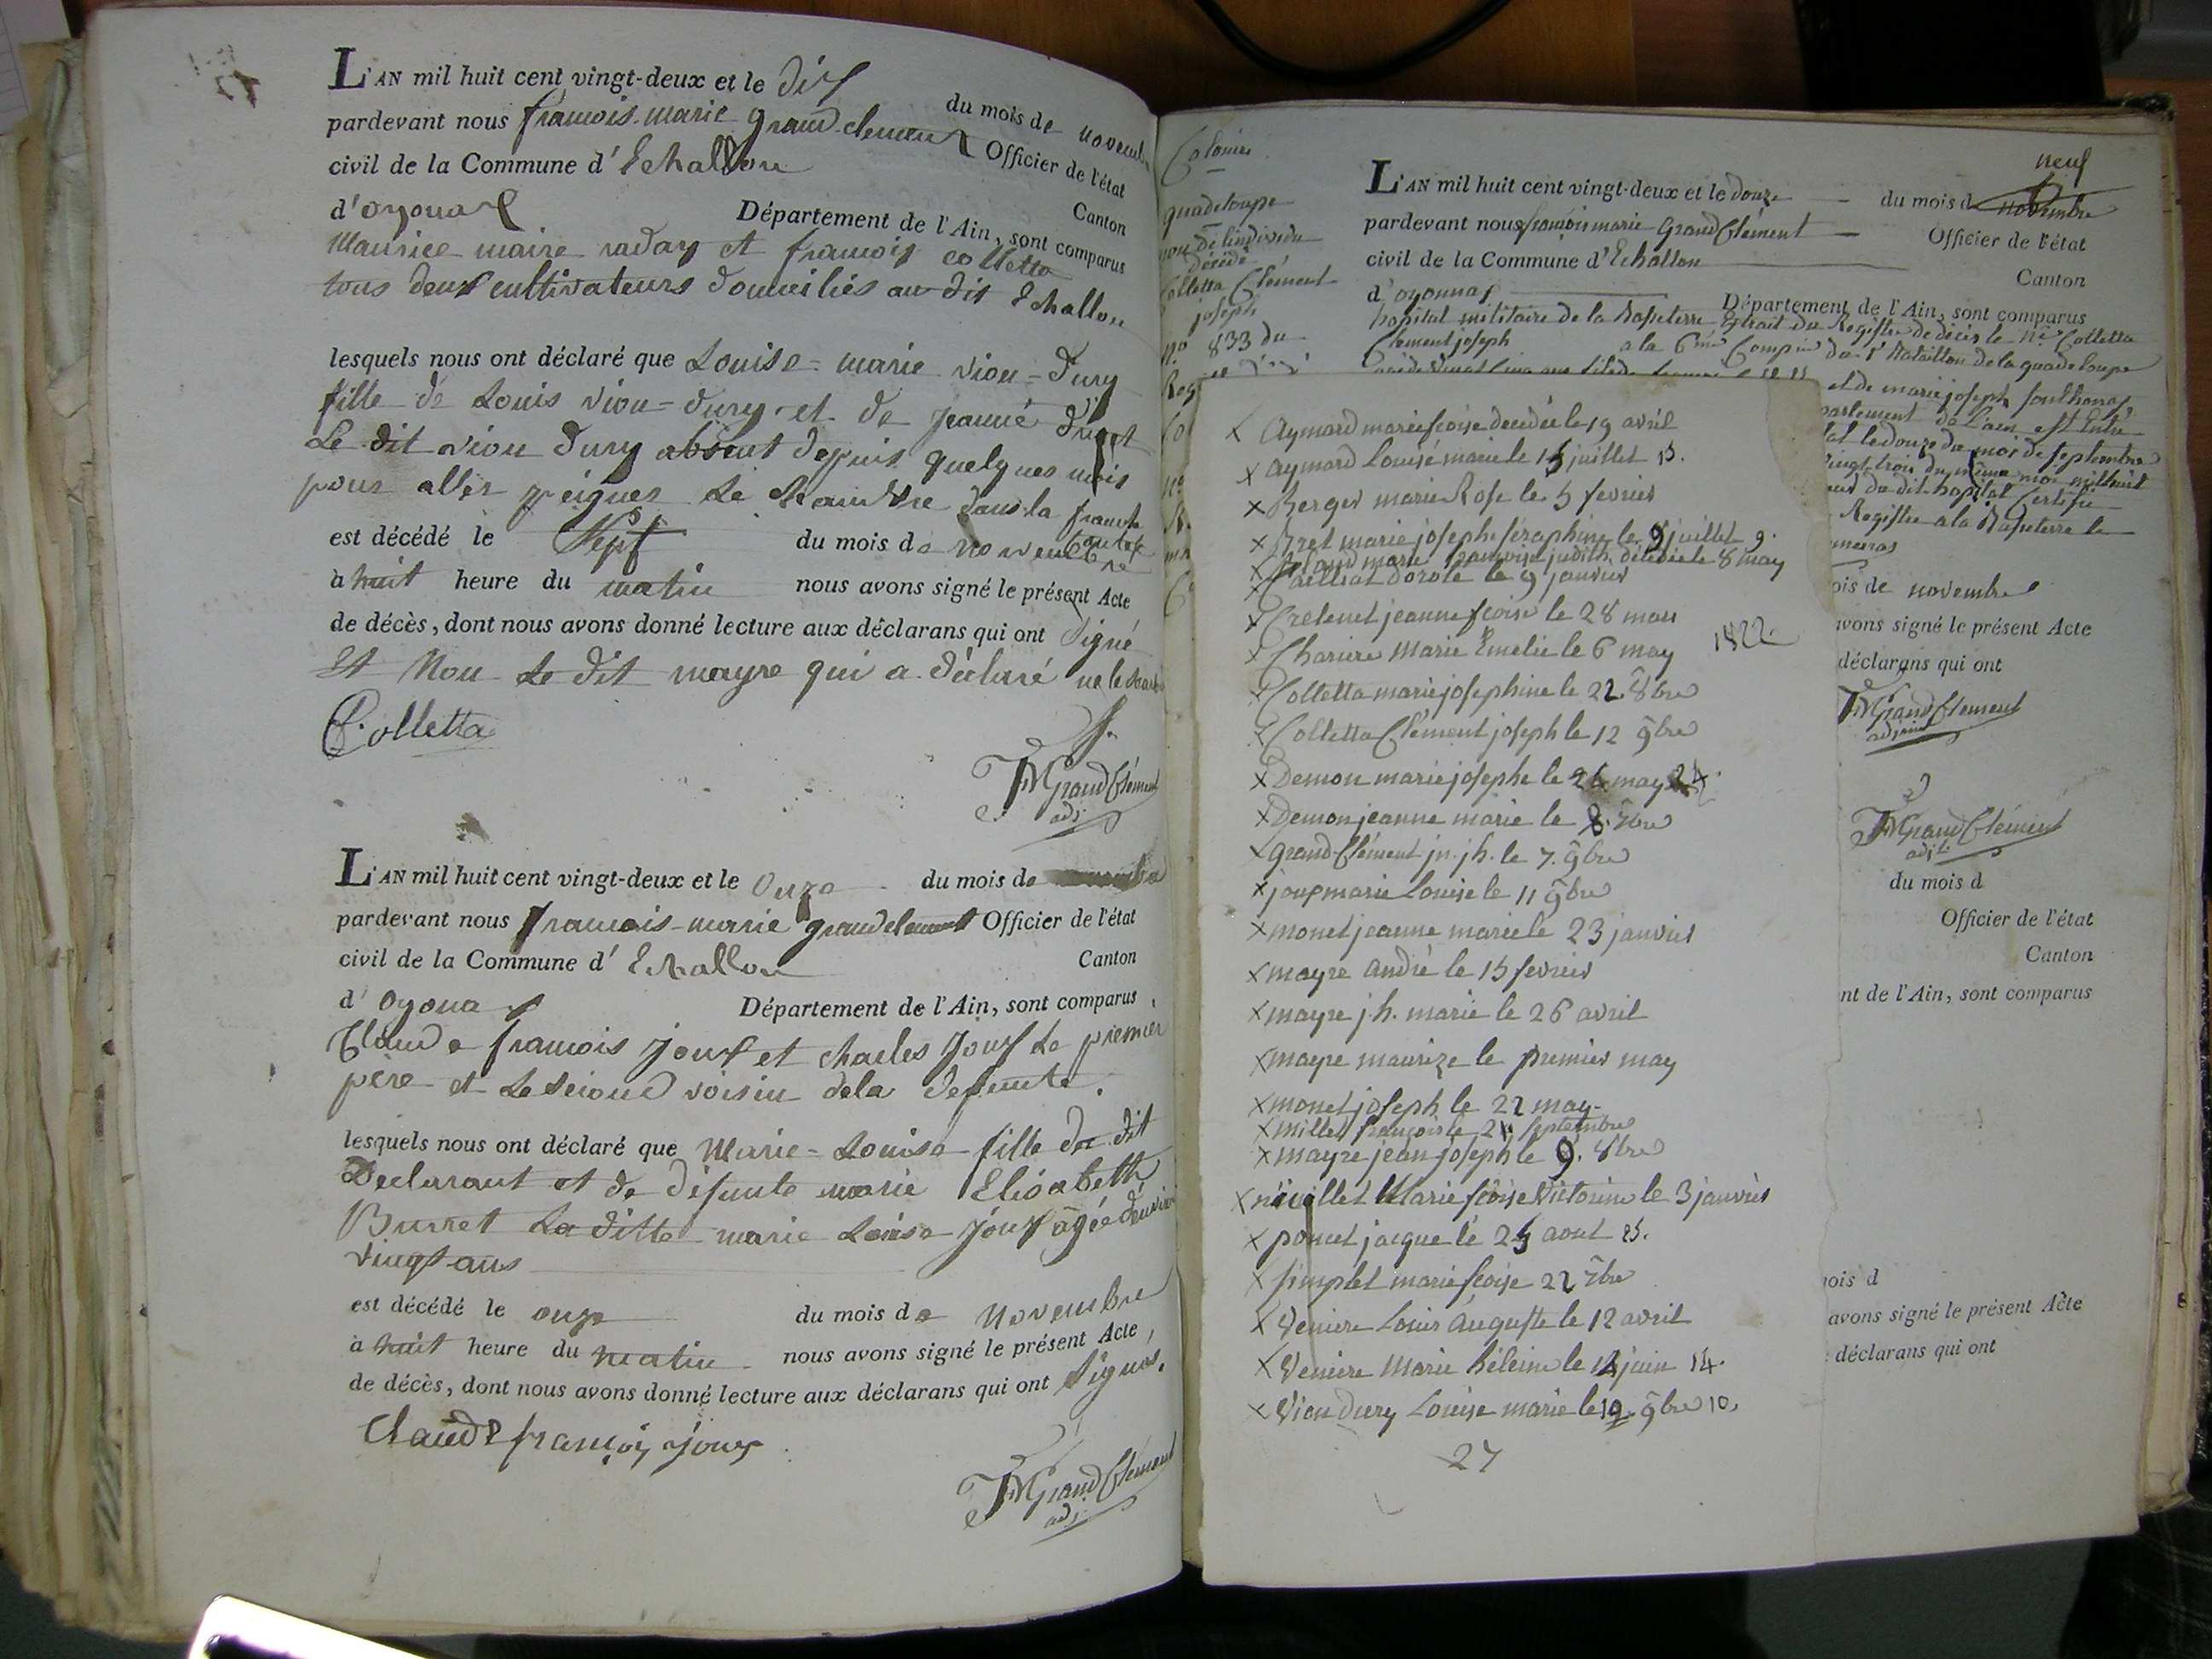 L'AN mil huit cent vingt-deux et le dix du mois de novemb
pardevant nous françois-marie grand-clement Officier de l'état
civil de la Commune d'Echallon Canton
d'oyonax Département de l'Ain, sont comparus
Maurice maire raday et françois colletta
tous deux cultivateurs domiciliés au dit Echallon
lesquels nous ont déclaré que Louise-marie viou-dury
fille de Louis viou-dury et de jeanne
Le dit viou dury absent depuis quelques mois
pour aller peigner le chanvre dans la franche
comté
est décédé le Sept du mois de novembre
à huit heure du matin nous avons signé le présent Acte
de décès, dont nous avons donné lecture aux déclarans qui ont signé
Et Non Le dit mayre qui a déclaré ne le
C. olletta
FMGrandClément
adj.
L'AN mil huit cent vingt-deux et le Onze du mois de
pardevant nous francois-marie grandclement Officier de l'état
civil de la Commune d'Echallon Canton
d'Oyonax Département de l'Ain, sont comparus
Claude francois joux et charles joux Le premier
père et Le second voisin dela defunte.
lesquels nous ont déclaré que Marie-Louise fille du dit
Declarant et de defunte marie Elisabeth
Burret La ditte marie Louise joux âgée denviron
vingt ans
est décédé le onze du mois de Novembre
à huit heure du matin nous avons signé le présent Acte,
de décès, dont nous avons donné lecture aux déclarans qui ont signés.
Claude françois joux
FMGrandClément
adj.
Colonies
guadeloupe
nom de l'individu
décédé
Colletta Clément
joseph
n° 833 du
L'AN mil huit cent vingt-deux et le douze du mois d novembre
neuf
pardevant nous françois marie GrandClément Officier de l'état
civil de la Commune d'Echallon Canton
d'oyonnax Département de l'Ain, sont comparus
hopital militaire de la Basseterre Extrait du Registre de décès le né Colletta
Clement joseph a la 6me Compie du 1r Bataillon de la guadeloupe
et de marie joseph
partement de L'ain est Entré
le douze du mois de septembre
vingt trois du même mois mil huit
du dit hopital Certifié
Registre a la Basseterre le
ois de novembre
avons signé le présent Acte
déclarans qui ont
FMGrandClement
adjoint
FMGrandClément
adjt.
du mois d
Officier de l'état
Canton
nt de l'Ain, sont comparus
ois d
avons signé le présent Acte
déclarans qui ont
x Aymard marie fcoise decedée le 19 avril
x aymard Louise marie le 15 juillet 15.
x Berger marie Rose le 5 fevrier
x Bret marie josephe seraphine le 9 juillet 9.
x marie francoise judith décédée le 8 may
x Cailliat dorote le 9 janvier
x Cretenet jeanne fcoise le 28 mars
x Chariere Marie Emelie le 6 may
1822.
x Colletta marie josephine le 22 8bre
x Colletta Clement joseph le 12 9bre
x Demon marie josephe le 24 may 24.
x Demon jeanne marie le 8. 7bre
x grand-Clément jn. jh. le 7. 9bre
x joux marie Louise le 11 9bre
x monet jeanne marie le 23 janvier
x mayre andré le 15 fevrier
x mayre j.h. marie le 26 avril
x mayre maurize le premier may
x monet joseph le 22 may.
x millet françois le 21 septembre
x mayre jean joseph le 9. 8bre
x nicollet Marie fcoise Victorine le 3 janvier
x poncet jacque le 25 aout 25.
x simplet marie fcoise 22 7bre
x Veniere Louis Auguste le 12 avril
x Veniere Marie héleine le 14 juin 14.
x Viou Dury Louise marie le 10 9bre 10.
27